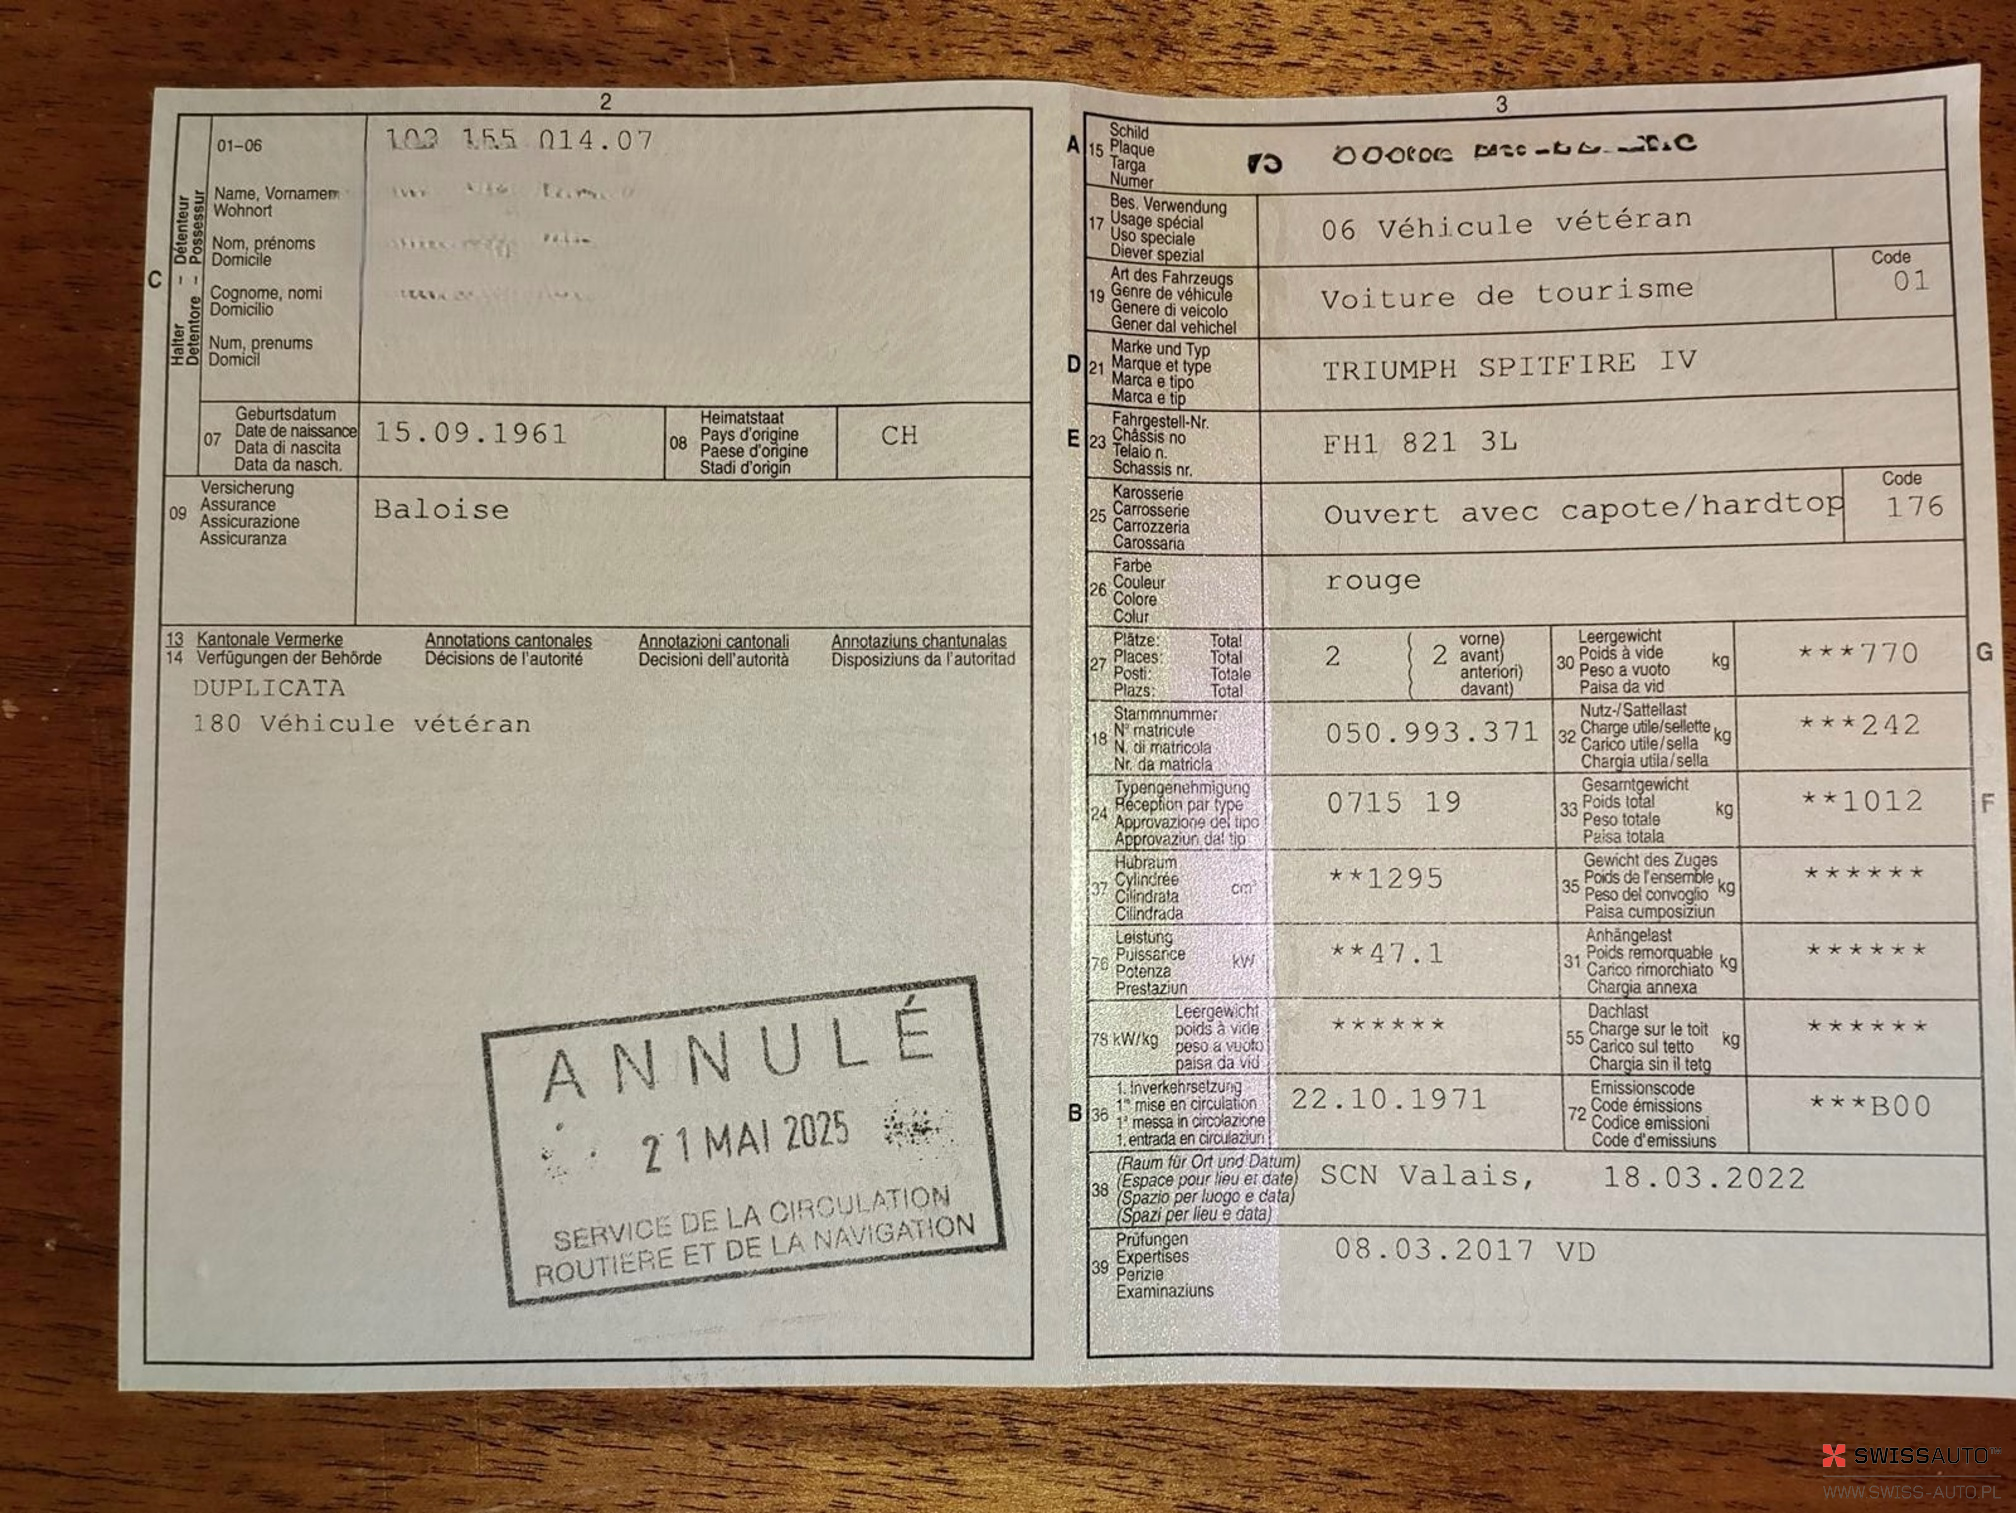 2
01–06
103 155 014.07
Name, Vornamen
Wohnort
Nom, prénoms
Domicile
Cognome, nomi
Domicilio
Num, prenums
Domicil
C
Halter – Détenteur
Detentore – Possessur
07
Geburtsdatum
Date de naissance
Data di nascita
Data da nasch.
15.09.1961
08
Heimatstaat
Pays d'origine
Paese d'origine
Stadi d'origin
CH
09
Versicherung
Assurance
Assicurazione
Assicuranza
Baloise
13 Kantonale Vermerke Annotations cantonales Annotazioni cantonali Annotaziuns chantunalas
14 Verfügungen der Behörde Décisions de l'autorité Decisioni dell'autorità Disposiziuns da l'autoritad
DUPLICATA
180 Véhicule vétéran
ANNULÉ
21 MAI 2025
SERVICE DE LA CIRCULATION
ROUTIÈRE ET DE LA NAVIGATION
3
A
15
Schild
Plaque
Targa
Numer
17
Bes. Verwendung
Usage spécial
Uso speciale
Diever spezial
06 Véhicule vétéran
19
Art des Fahrzeugs
Genre de véhicule
Genere di veicolo
Gener dal vehichel
Voiture de tourisme
Code
01
D
21
Marke und Typ
Marque et type
Marca e tipo
Marca e tip
TRIUMPH SPITFIRE IV
E
23
Fahrgestell-Nr.
Châssis no
Telaio n.
Schassis nr.
FH1 821 3L
25
Karosserie
Carrosserie
Carrozzeria
Carossaria
Ouvert avec capote/hardtop
Code
176
26
Farbe
Couleur
Colore
Colur
rouge
27
Plätze: Total
Places: Total
Posti: Totale
Plazs: Total
2
( 2
vorne)
avant)
anteriori)
davant)
30
Leergewicht
Poids à vide
Peso a vuoto
Paisa da vid
kg
***770
G
18
Stammnummer
N° matricule
N. di matricola
Nr. da matricla
050.993.371
32
Nutz-/Sattellast
Charge utile/sellette
Carico utile/sella
Chargia utila/sella
kg
***242
24
Typengenehmigung
Réception par type
Approvazione del tipo
Approvaziun dal tip
0715 19
33
Gesamtgewicht
Poids total
Peso totale
Paisa totala
kg
**1012
F
37
Hubraum
Cylindrée
Cilindrata
Cilindrada
cm³
**1295
35
Gewicht des Zuges
Poids de l'ensemble
Peso del convoglio
Paisa cumposiziun
kg
******
76
Leistung
Puissance
Potenza
Prestaziun
kW
**47.1
31
Anhängelast
Poids remorquable
Carico rimorchiato
Chargia annexa
kg
******
78 kW/kg
Leergewicht
poids à vide
peso a vuoto
paisa da vid
******
55
Dachlast
Charge sur le toit
Carico sul tetto
Chargia sin il tetg
kg
******
B
36
1. Inverkehrsetzung
1re mise en circulation
1a messa in circolazione
1. entrada en circulaziun
22.10.1971
72
Emissionscode
Code émissions
Codice emissioni
Code d'emissiuns
***B00
38
(Raum für Ort und Datum)
(Espace pour lieu et date)
(Spazio per luogo e data)
(Spazi per lieu e data)
SCN Valais, 18.03.2022
39
Prüfungen
Expertises
Perizie
Examinaziuns
08.03.2017 VD
SWISSAUTO
WWW.SWISS-AUTO.PL